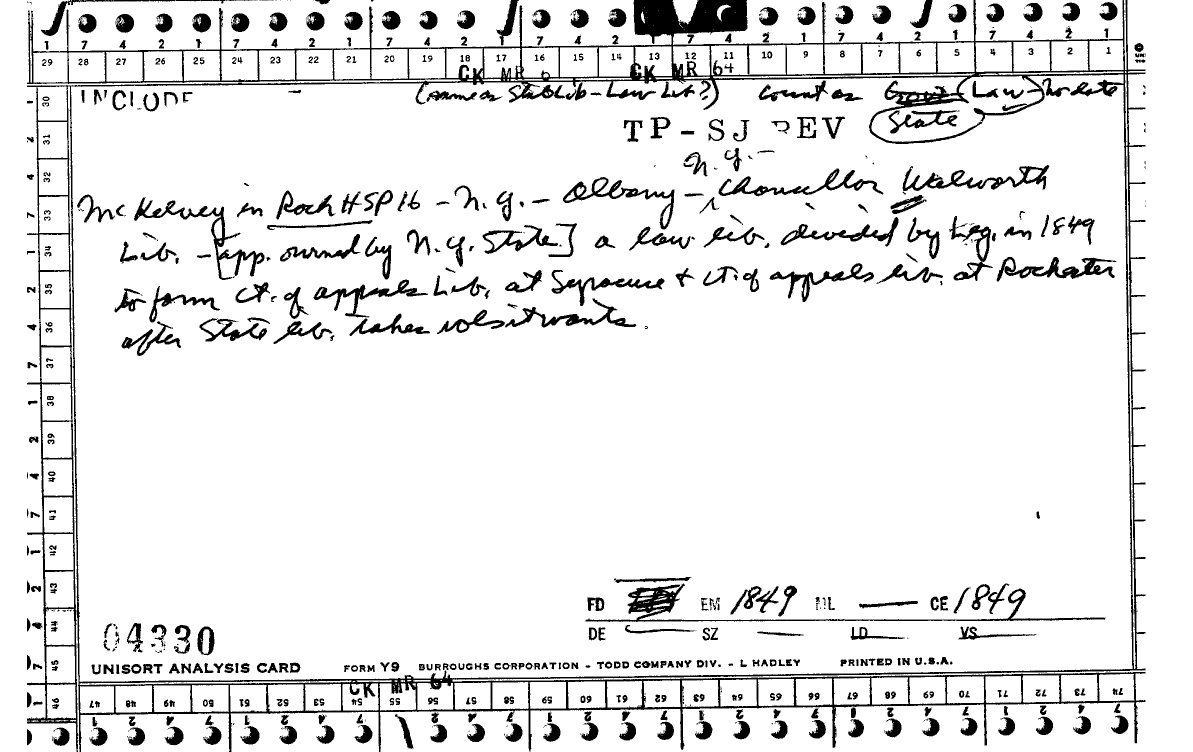 7 4 2 1 7 4 2 1 7 4 2 1 7 4 2 1 7 4 2 1 7 4 2 1
29 28 27 26 25 24 23 22 21 20 19 18 17 16 15 14 13 12 11 10 9 8 7 6 5 4 3 2 1
CK MR 6 CK MR 64
INCLUDE (same as State Lib - Law Lib?) Count as Govt (Law) no date
TP-SJ REV State
N.Y.-
McKelvey in Roch HSP 16 - N.Y. - Albany - Chancellor Walworth
Lib. - [app. owned by N.Y. State] a law lib. divided by Leg. in 1849
to form Ct. of appeals Lib. at Syracuse + Ct. of appeals lib. at Rochester
after State lib. takes vols it wants.
30
31
32
33
34
35
36
37
38
39
40
41
42
43
44
45
46
FD EM 1849 ML — CE 1849
DE SZ — LD VS
04330
UNISORT ANALYSIS CARD FORM Y9 BURROUGHS CORPORATION - TODD COMPANY DIV. - L HADLEY PRINTED IN U.S.A.
CK MR 64
47 48 49 50 51 52 53 54 55 56 57 58 59 60 61 62 63 64 65 66 67 68 69 70 71 72 73 74